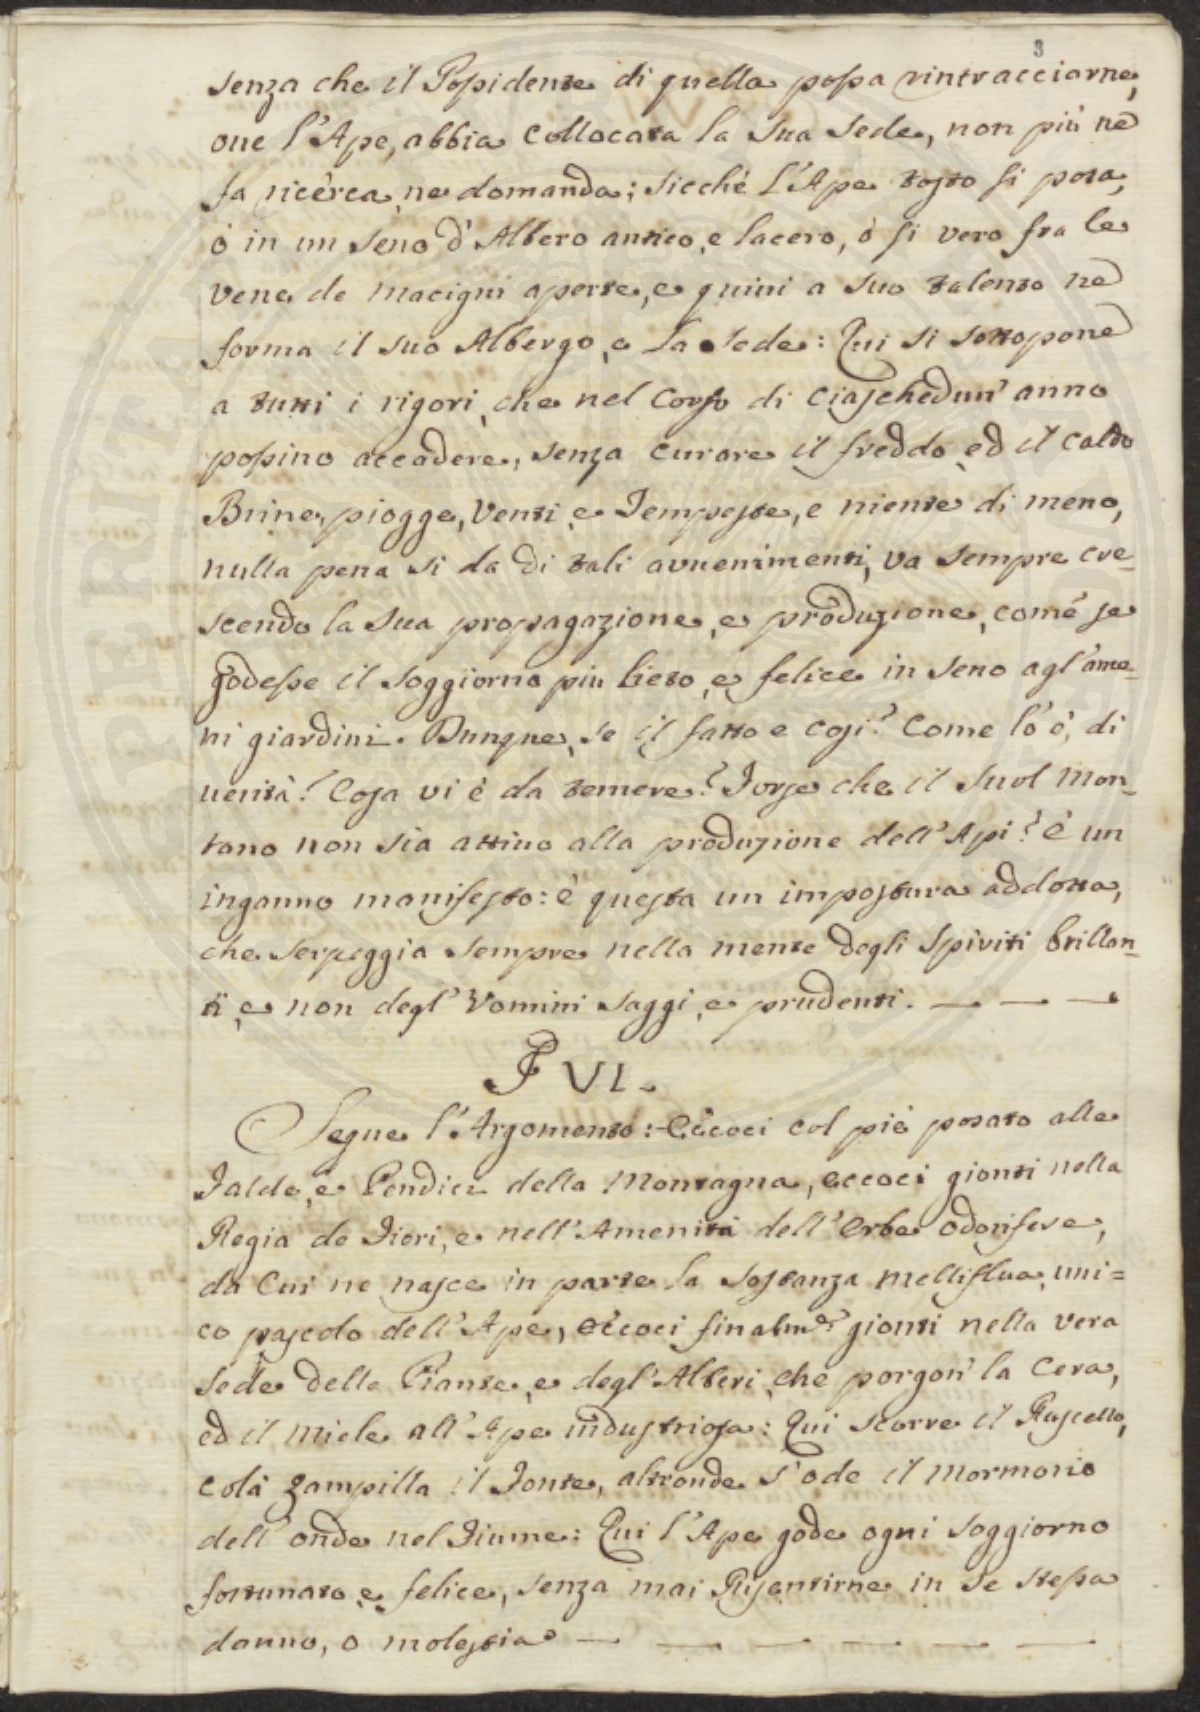 3
senza che il Possidente di quella possa rintracciarne,
oue l'Ape, abbia collocata la sua sede, non più ne
fa ricerca, ne domanda; sicchè l'Ape tosto si posa,
ò in un seno d'Albero antico, e lacero, ò si vero fra le
vene de macigni aperte, e quiui a suo talento ne
forma il suo Albergo, e la sede: Qui si sottopone
a tutti i rigori, che nel corso di ciaschedun' anno
possino accadere, senza curare il freddo, ed il caldo
Brine, piogge, Venti, e Tempeste, e niente di meno,
nulla pena si da di tali auuenimenti, va sempre cre-
scendo la sua propagazione, e produzione, come se
godesse il soggiorno più lieto, e felice in seno agl'ame-
ni giardini. Dunque, se il fatto e cosi? Come lo è, di
uerità! Cosa vi è da temere? Forse che il suol Mon-
tano non sia attiuo alla produzione dell'Api? è un
inganno manifesto: è questa un impostura addotta,
che serpeggia sempre nella mente degli Spiriti brillan-
ti, e non degl'Vomini saggi, e prudenti. — — —
§ VI.
Segue l'Argomento: Eccoci col piè posato alle
Falde, e Pendici della Montagna, eccoci gionti nella
Regia de Fiori, e nell'Amenità dell'Erbe odorifere,
da cui ne nasce in parte la sostanza melliflua, uni=
co pascolo dell'Ape, eccoci finalm.e gionti nella vera
sede delle Piante, e degl'Alberi, che porgon' la Cera,
ed il miele all'Ape industriosa: Qui scorre il Ruscello,
colà zampilla il Fonte, altronde s'ode il mormorio
dell'onde nel Fiume: Qui l'Ape gode ogni soggiorno
fortunato e felice, senza mai Risentirne in se stessa
danno, o molestia — — — — — —
SPERITA